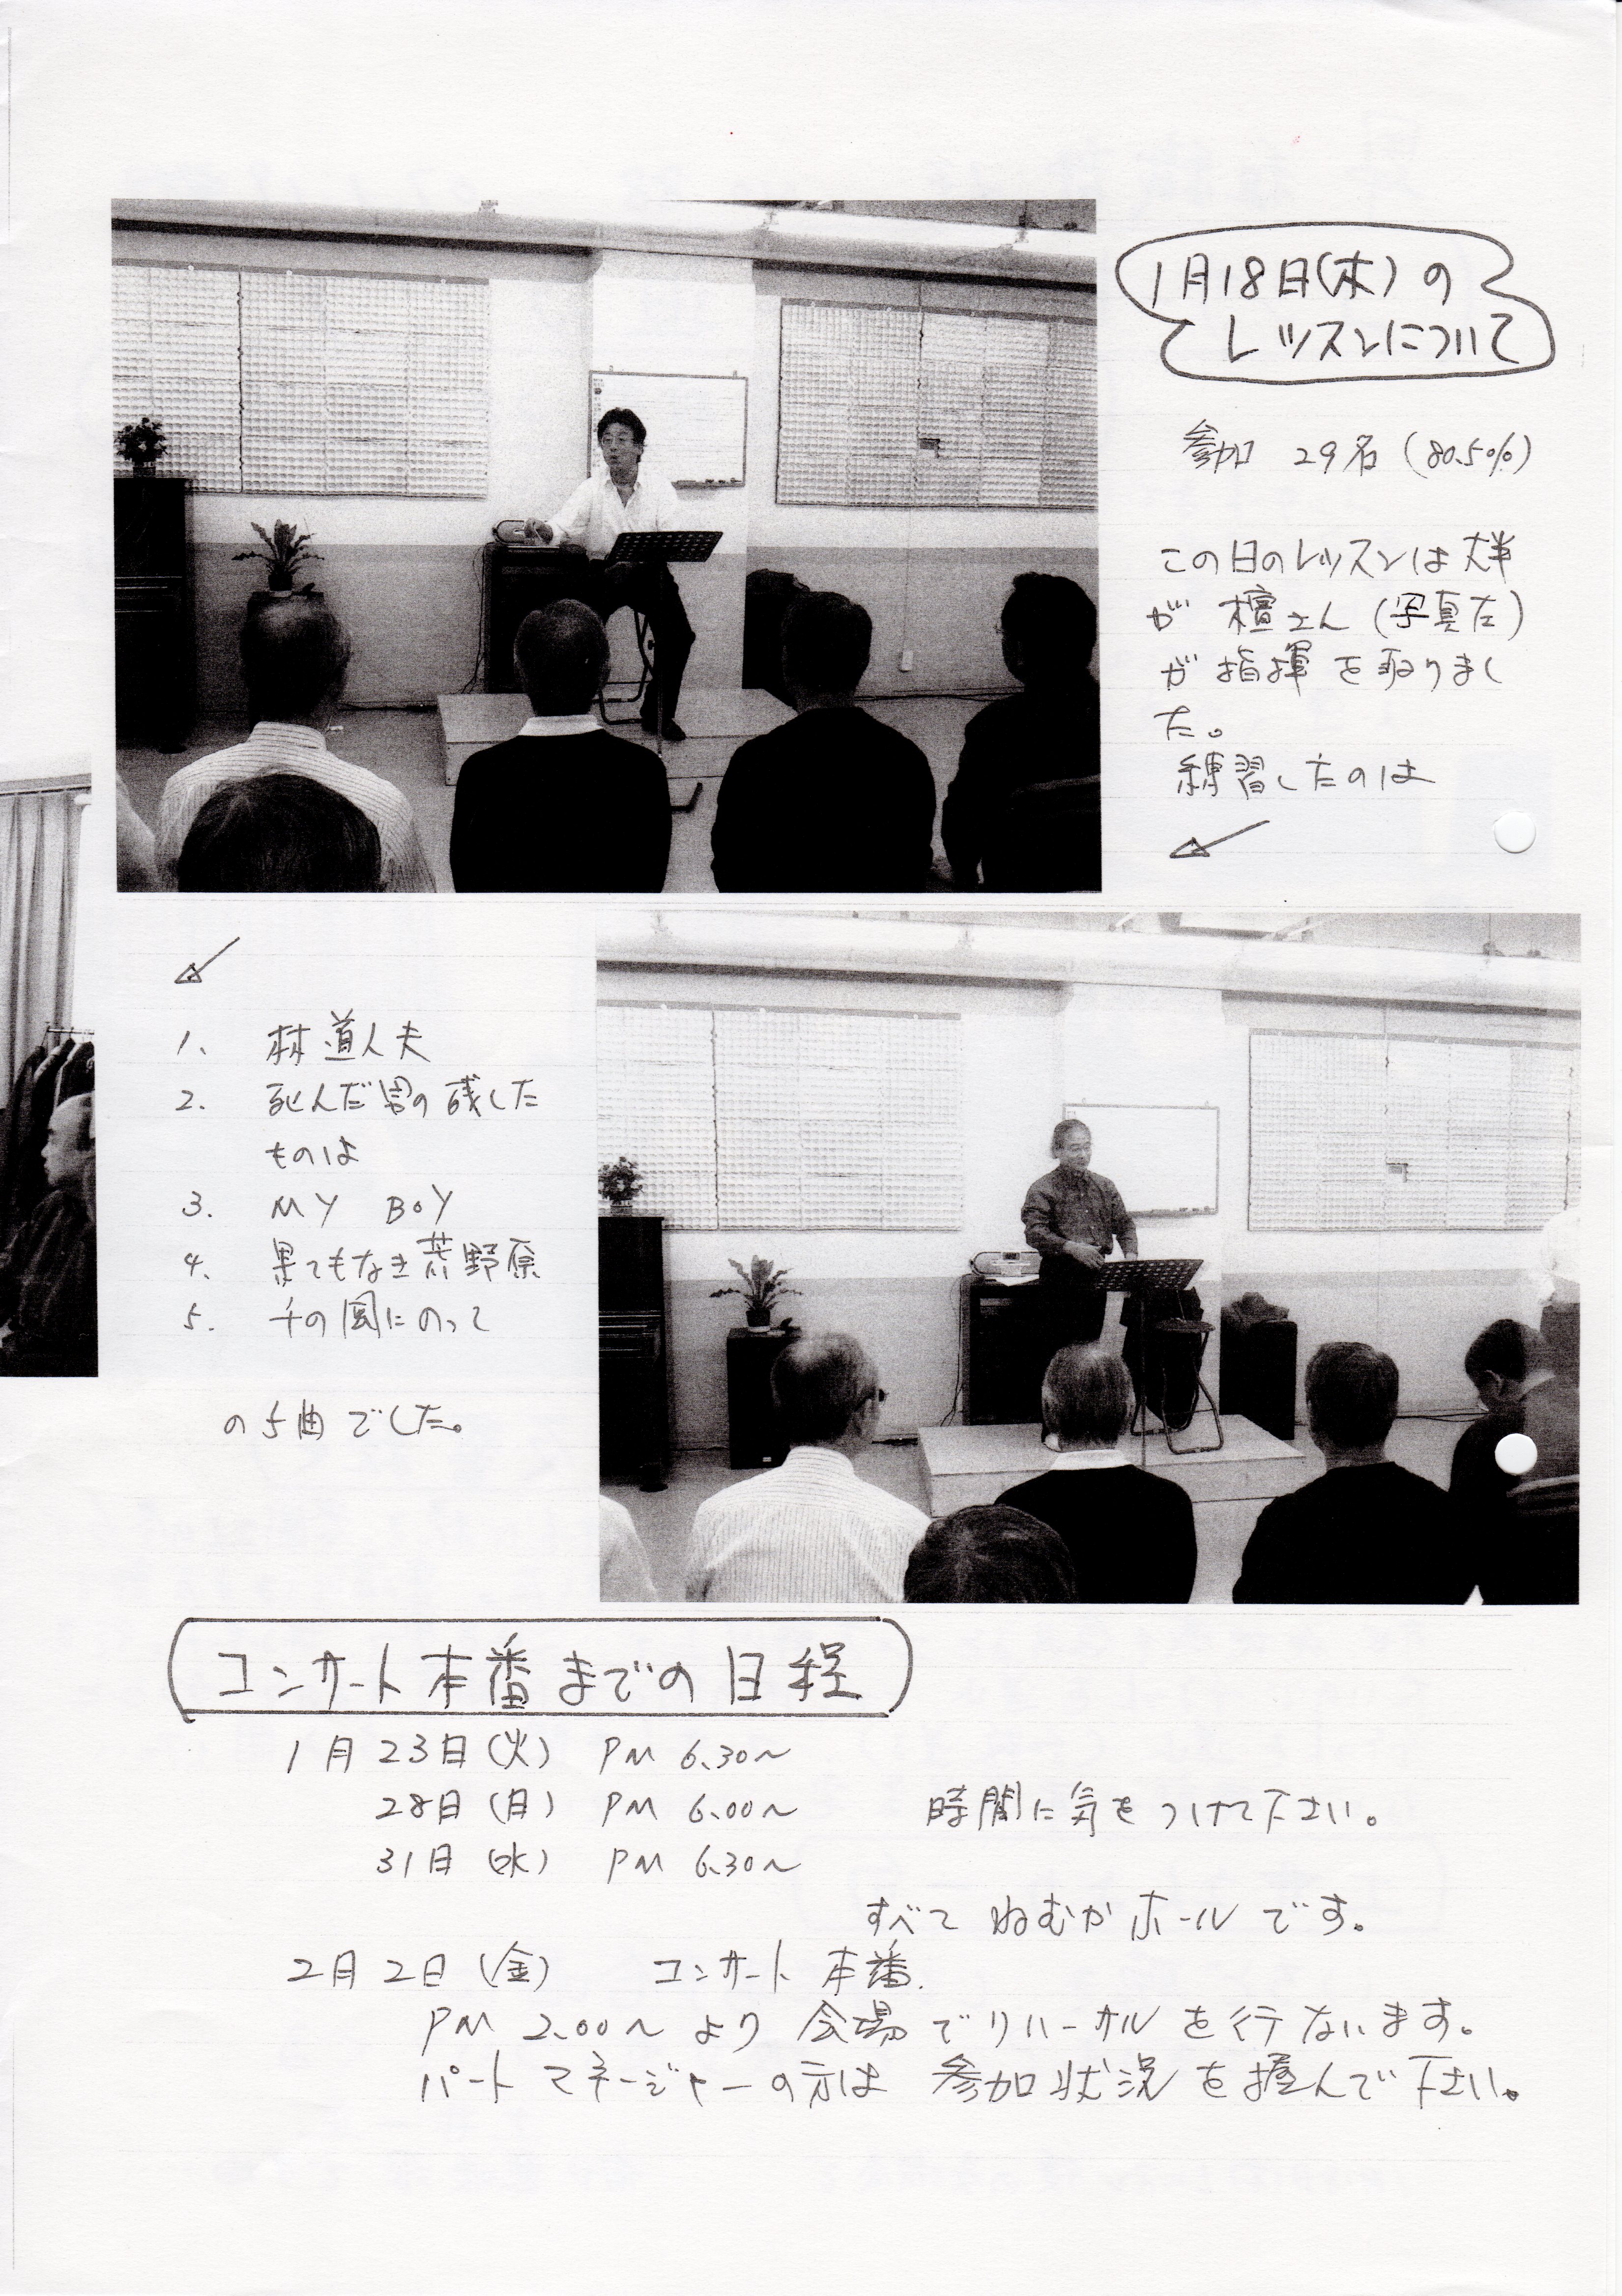 1月18日(木)の
レッスンについて
参加 29名(80.5%)
この日のレッスンは大半
が 檀さん(写真左)
が指揮を取りまし
た。
練習したのは
1、 林道人夫
2. 死んだ男の残した
ものは
3. MY BOY
4. 果てもなき荒野原
5. 千の風にのって
の5曲でした。
コンサート本番までの日程
1月23日(火) PM 6.30〜
28日(月) PM 6.00〜 時間に気をつけて下さい。
31日(水) PM 6.30〜
すべて ねむかホールです。
2月2日(金) コンサート本番.
PM 2.00〜より会場でリハーサルを行ないます。
パートマネージャーの方は参加状況を掴んで下さい。